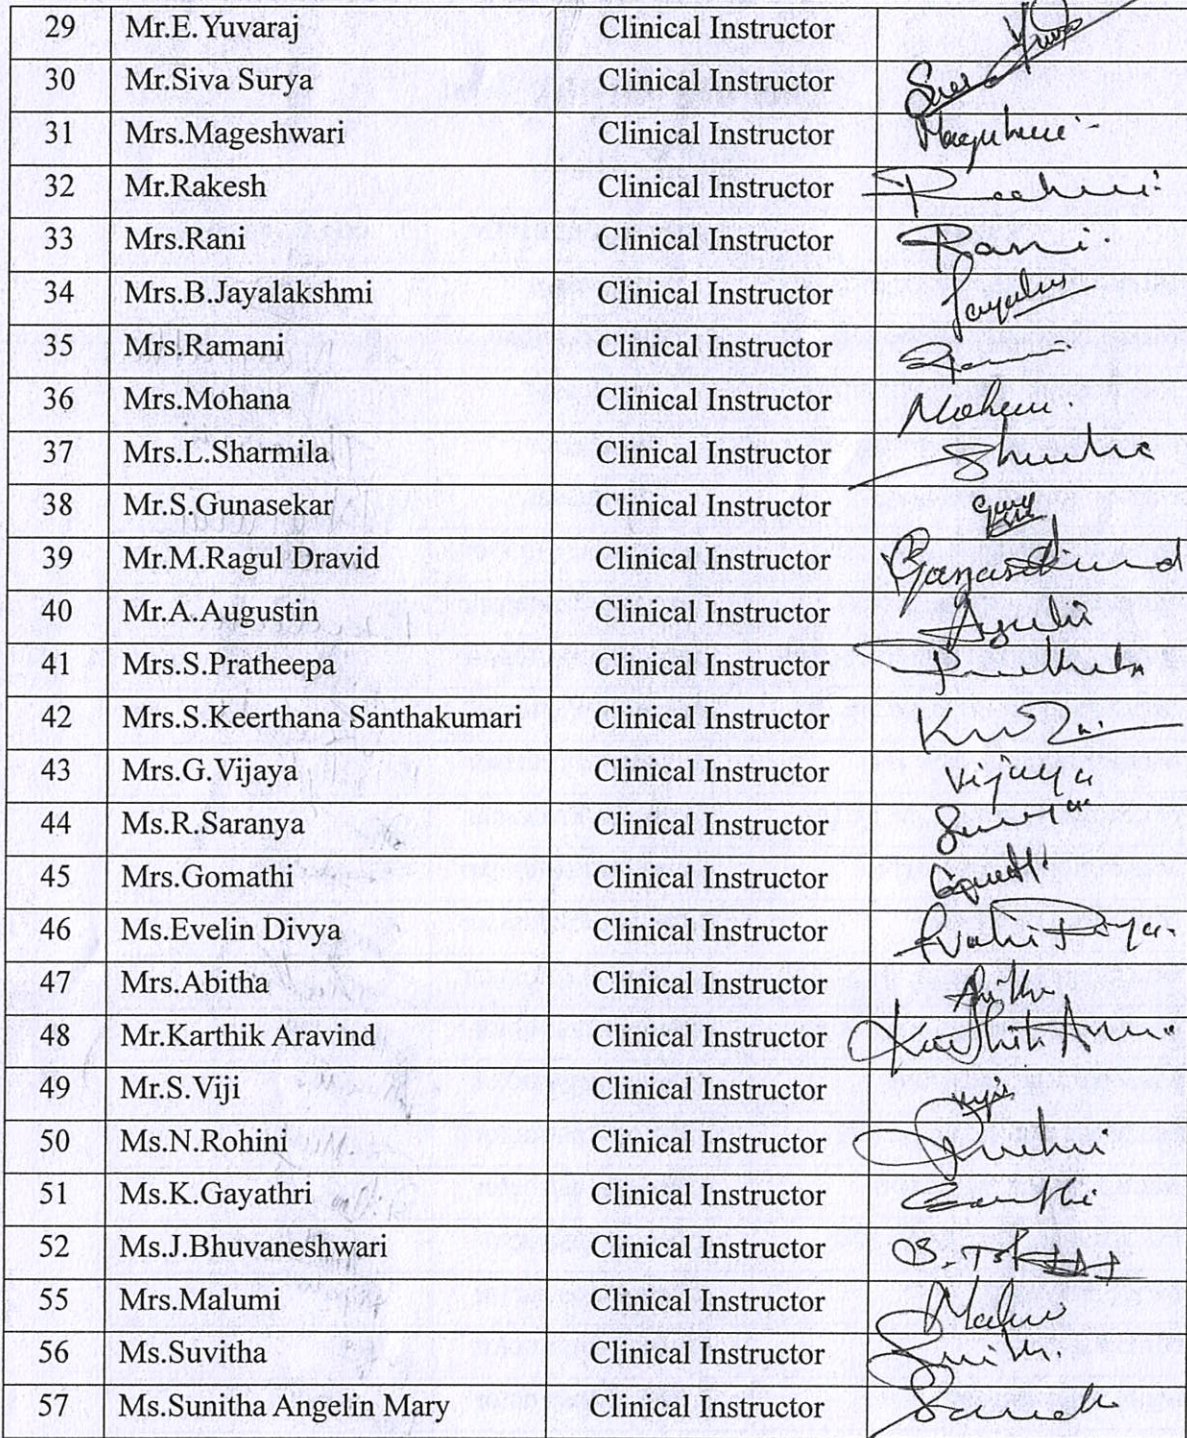 29 Mr.E.Yuvaraj Clinical Instructor
30 Mr.Siva Surya Clinical Instructor
31 Mrs.Mageshwari Clinical Instructor
32 Mr.Rakesh Clinical Instructor
33 Mrs.Rani Clinical Instructor Rani
34 Mrs.B.Jayalakshmi Clinical Instructor
35 Mrs.Ramani Clinical Instructor
36 Mrs.Mohana Clinical Instructor
37 Mrs.L.Sharmila Clinical Instructor
38 Mr.S.Gunasekar Clinical Instructor
39 Mr.M.Ragul Dravid Clinical Instructor
40 Mr.A.Augustin Clinical Instructor
41 Mrs.S.Pratheepa Clinical Instructor
42 Mrs.S.Keerthana Santhakumari Clinical Instructor
43 Mrs.G.Vijaya Clinical Instructor Vijaya
44 Ms.R.Saranya Clinical Instructor
45 Mrs.Gomathi Clinical Instructor
46 Ms.Evelin Divya Clinical Instructor
47 Mrs.Abitha Clinical Instructor
48 Mr.Karthik Aravind Clinical Instructor
49 Mr.S.Viji Clinical Instructor
50 Ms.N.Rohini Clinical Instructor
51 Ms.K.Gayathri Clinical Instructor
52 Ms.J.Bhuvaneshwari Clinical Instructor
55 Mrs.Malumi Clinical Instructor
56 Ms.Suvitha Clinical Instructor
57 Ms.Sunitha Angelin Mary Clinical Instructor